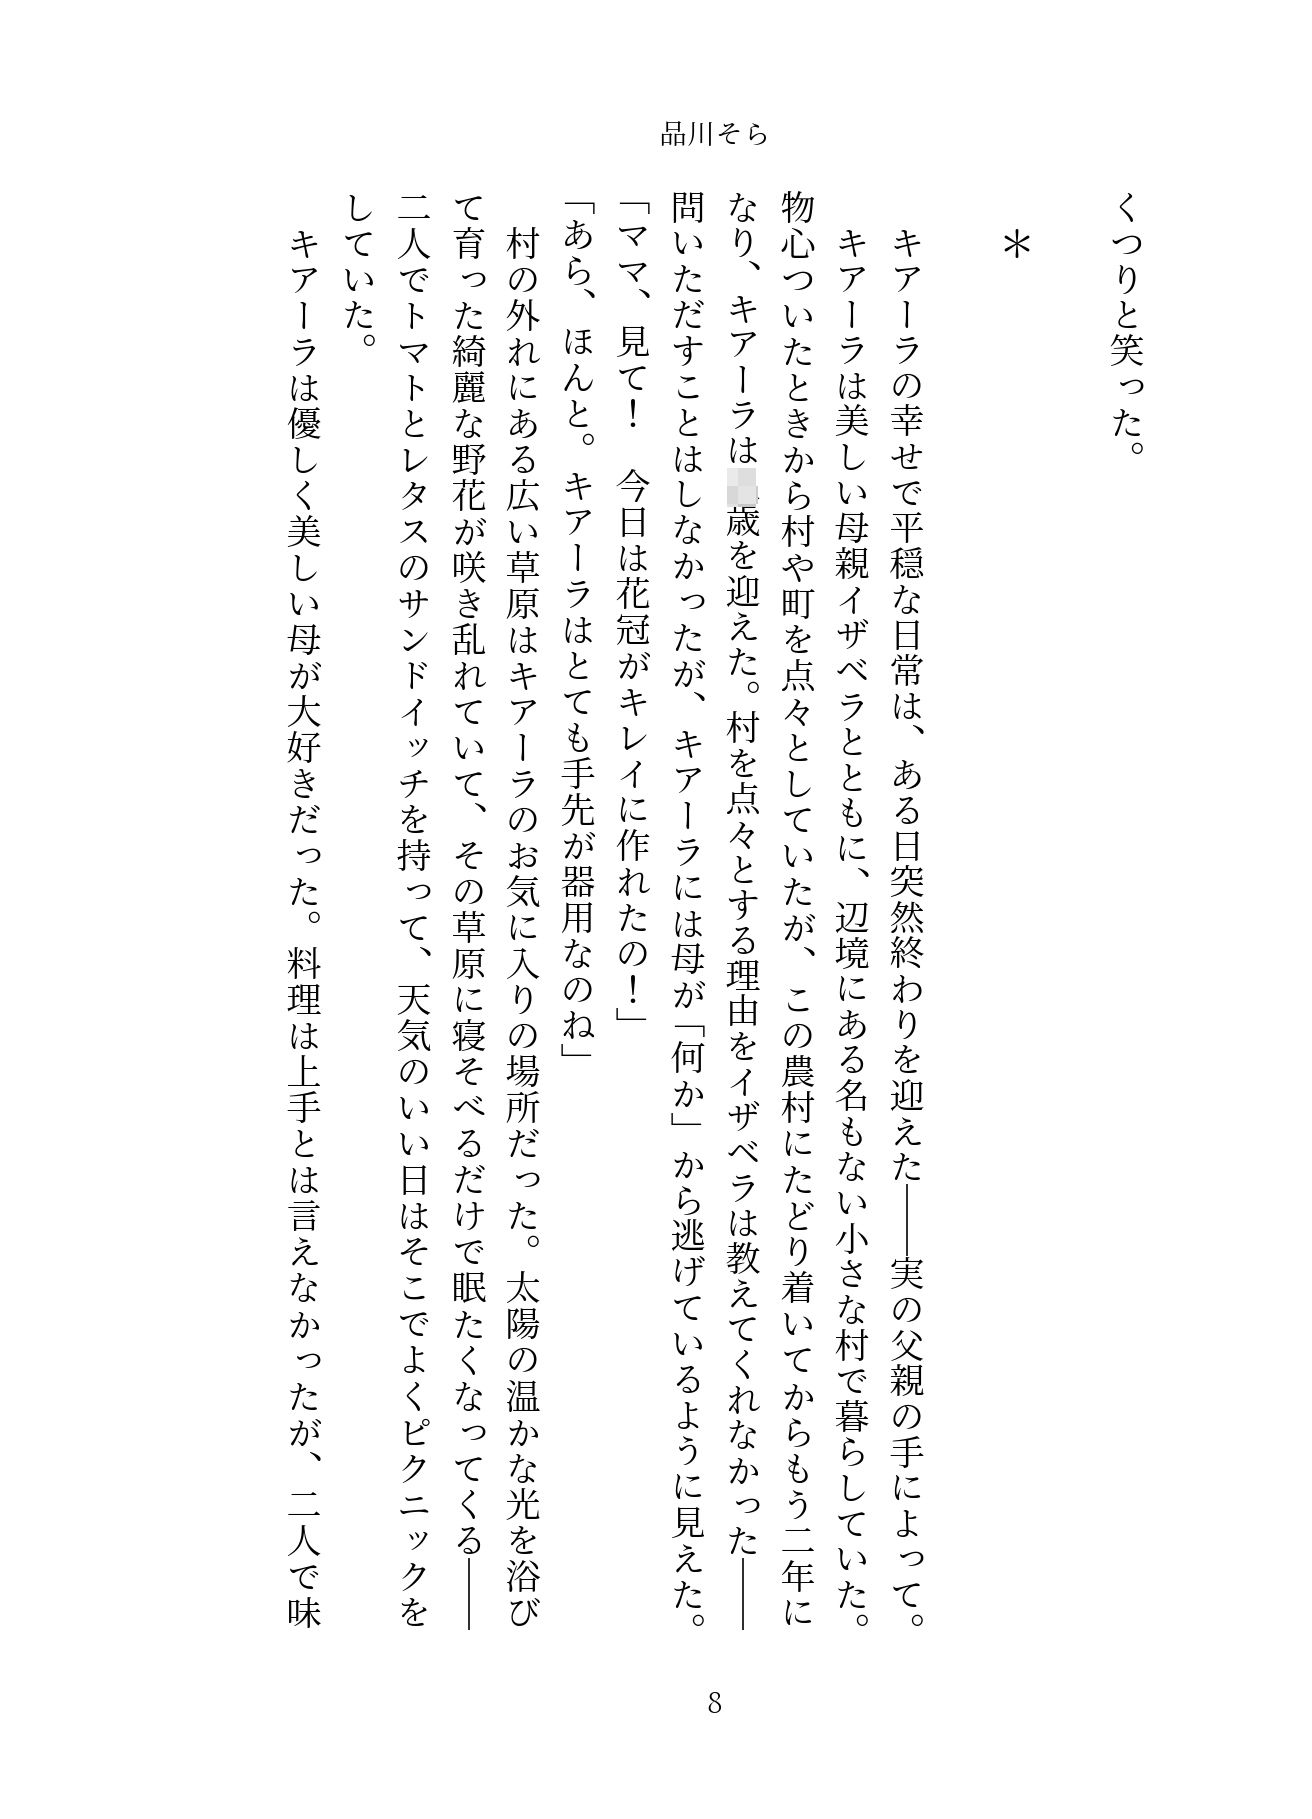 品川そら
くつりと笑った。
＊
　キアーラの幸せで平穏な日常は、ある日突然終わりを迎えた――実の父親の手によって。
　キアーラは美しい母親イザベラとともに、辺境にある名もない小さな村で暮らしていた。
物心ついたときから村や町を点々としていたが、この農村にたどり着いてからもう二年に
なり、キアーラは歳を迎えた。村を点々とする理由をイザベラは教えてくれなかった――
問いただすことはしなかったが、キアーラには母が「何か」から逃げているように見えた。
「ママ、見て！　今日は花冠がキレイに作れたの！」
「あら、ほんと。キアーラはとても手先が器用なのね」
　村の外れにある広い草原はキアーラのお気に入りの場所だった。太陽の温かな光を浴び
て育った綺麗な野花が咲き乱れていて、その草原に寝そべるだけで眠たくなってくる――
二人でトマトとレタスのサンドイッチを持って、天気のいい日はそこでよくピクニックを
していた。
　キアーラは優しく美しい母が大好きだった。料理は上手とは言えなかったが、二人で味
8